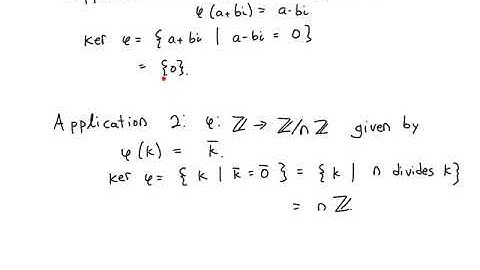 φ(a+bi) = a-bi
ker φ = { a+bi | a-bi = 0 }
= {0}.
Application 2: φ: ℤ → ℤ/nℤ given by
φ(k) = k̅.
ker φ = { k | k̅ = 0̅ } = { k | n divides k}
= nℤ.